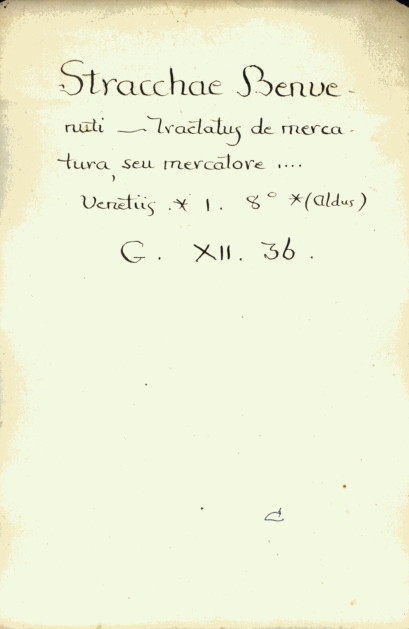 Stracchae Benve-
nuti — Tractatus de merca-
tura, seu mercatore ....
Venetiis * 1. 8° * (Aldus)
G. XII. 36.